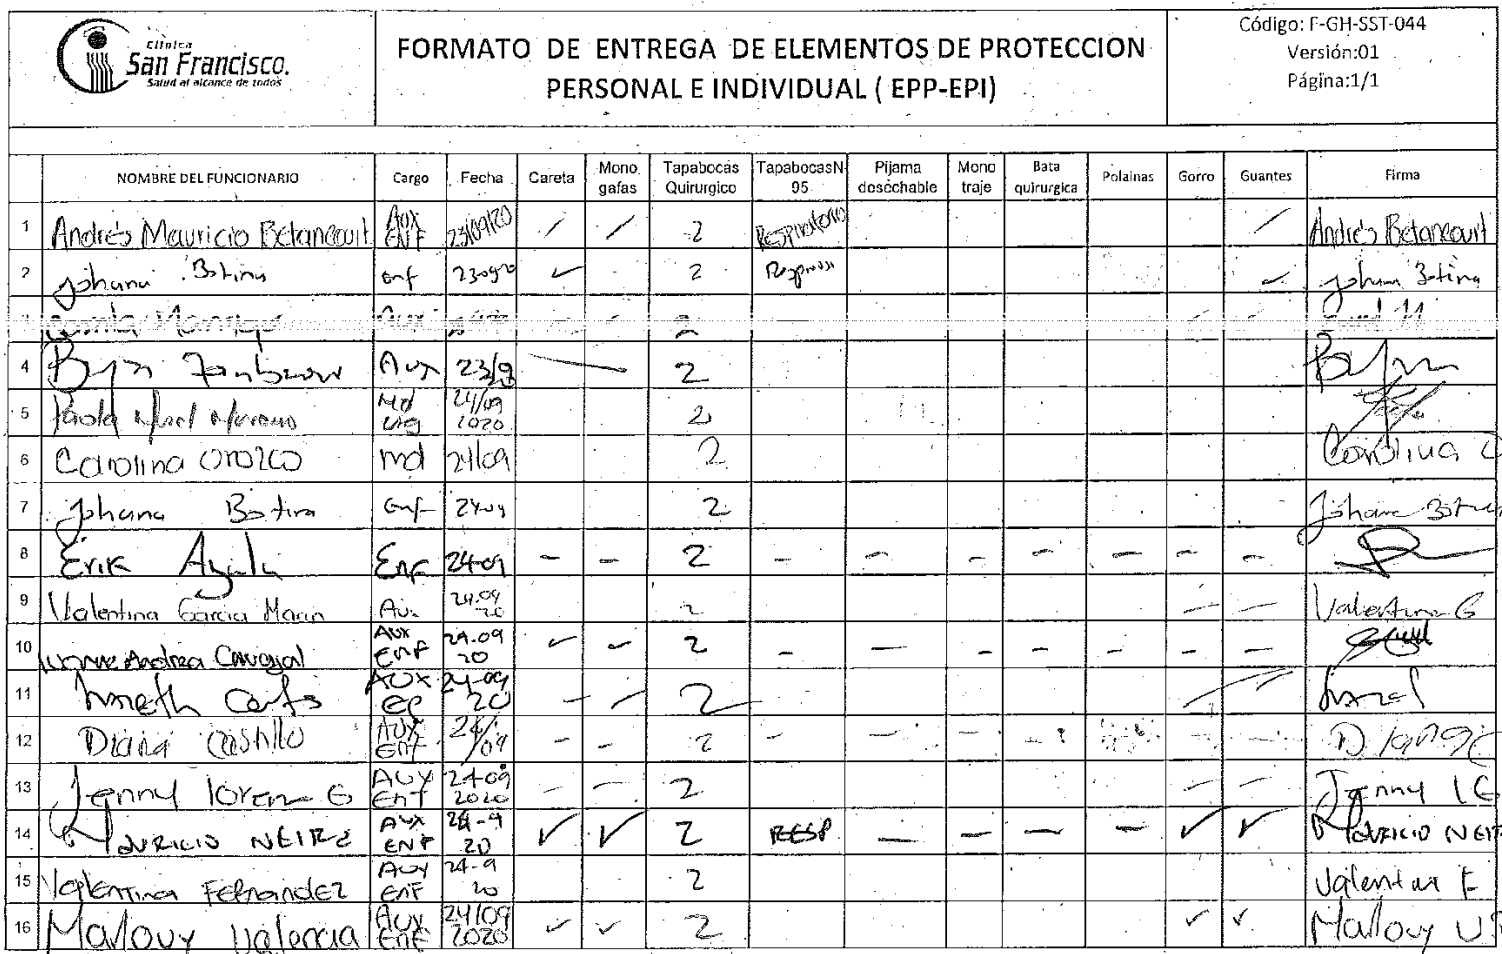 Clínica
San Francisco.
Salud al alcance de todos
FORMATO DE ENTREGA DE ELEMENTOS DE PROTECCION
PERSONAL E INDIVIDUAL ( EPP-EPI)
Código: F-GH-SST-044
Versión:01
Página:1/1
NOMBRE DEL FUNCIONARIO Cargo Fecha Careta Mono gafas Tapabocas Quirurgico TapabocasN 95 Pijama desechable Mono traje Bata quirurgica Polainas Gorro Guantes Firma
1 Andrés Mauricio Betancourt Aux ENF 23/09/20 2 Respiratorio Andrés Betancourt
2 Johana Botina enf 2 Johana Botina
3 Aux 2
4 Aux 23/9 2
5 Paola Md Urg 24/09 2020 2
6 Carolina Orozco md 24/09 2 Carolina O
7 Johana Botina enf 24-09 2 Johana Botina
8 Erik Ayala Enf 24-09 - - 2 - - - - - - -
9 Valentina Garcia Marin Aux 24.09 20 2 Valentina G
10 Andrea Carvajal Aux Enf 24.09 20 2 - - - - - - -
11 AUX 24-09 20 2
12 Diana Castillo Aux Enf 24/09 2 Diana C
13 Jenny Loren G Aux Enf 24-09 2020 2 Jenny L G
14 Mauricio NEIRA Aux ENF 24-9 20 ✓ ✓ 2 RESP - - - - ✓ ✓ Mauricio NEIR
15 Valentina Fernandez Aux Enf 24-9 20 2 Valentina F
16 Mallouy Valencia Aux Enf 24/09 2020 ✓ ✓ 2 ✓ ✓ Mallouy V